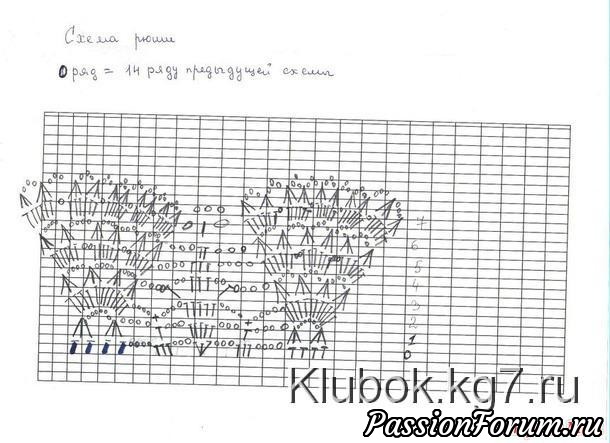 Схема рюши
0 ряд = 14 ряду предыдущей схемы
7
6
5
4
3
2
1
0
Klubok.kg7.ru
PassionForum.ru